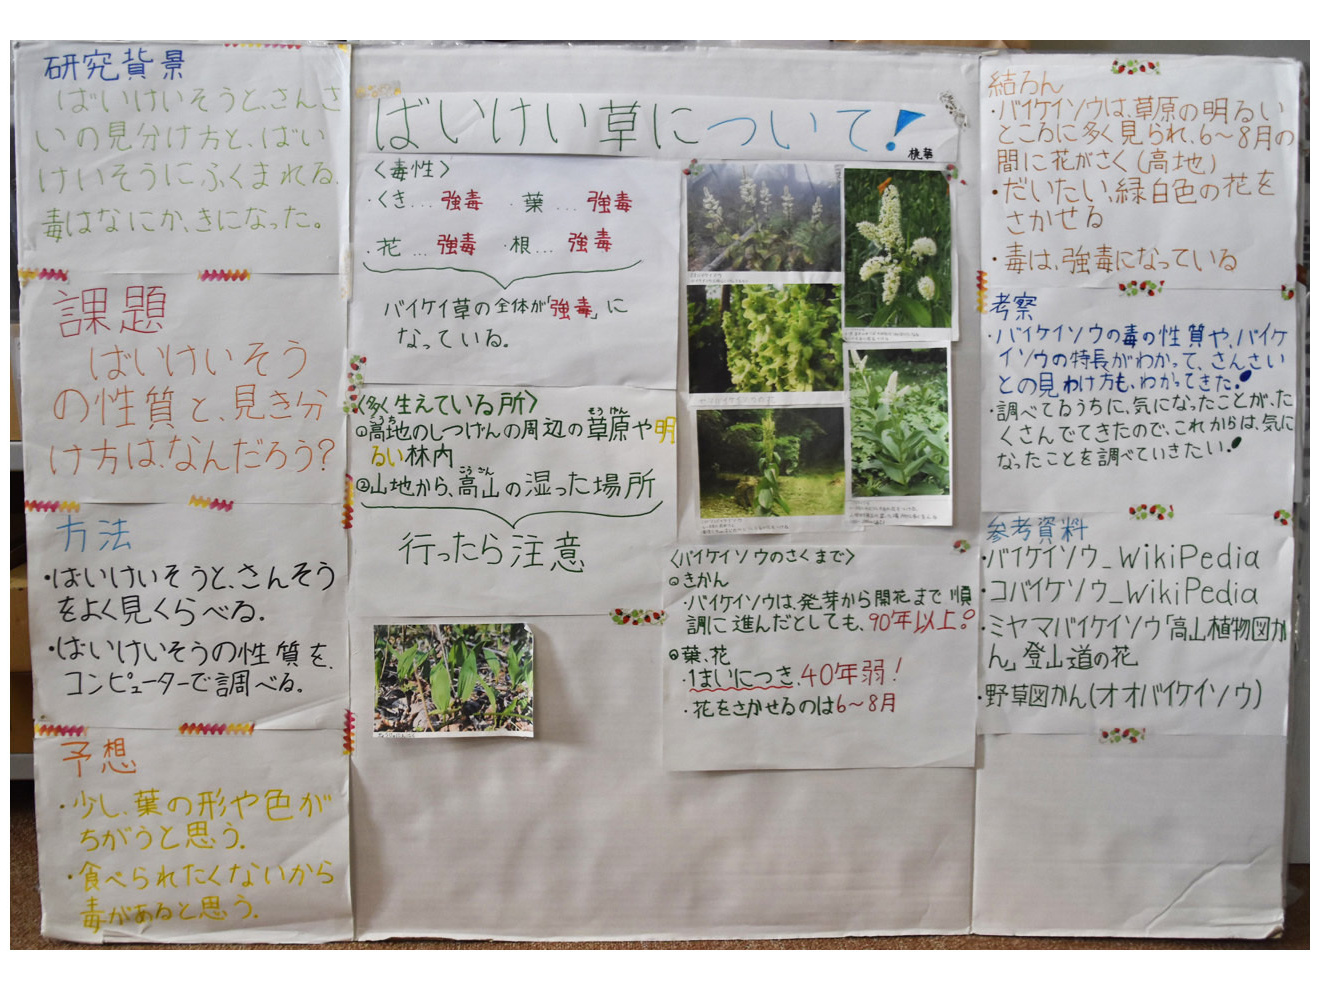 研究背景
ばいけいそうと、さんさ
いの見分け方と、ばい
けいそうにふくまれる、
毒はなにか、きになった。
課題
ばいけいそう
の性質と、見き分
け方は、なんだろう?
方法
・ばいけいそうと、さんそう
をよく見くらべる。
・ばいけいそうの性質を、
コンピューターで調べる。
予想
・少し、葉の形や色が
ちがうと思う。
・食べられたくないから
毒があると思う。
ばいけい草について!
桃華
〈毒性〉
・くき…強毒 ・葉…強毒
・花…強毒 ・根…強毒
バイケイ草の全体が「強毒」に
なっている。
〈多く生えている所〉
①高地のしつげんの周辺の草原や明
るい林内
②山地から、高山の湿った場所
行ったら注意
〈バイケイソウのさくまで〉
①きかん
・バイケイソウは、発芽から開花まで順
調に進んだとしても、90年以上!
②葉、花
・1まいにつき、40年弱!
・花をさかせるのは6~8月
結ろん
・バイケイソウは、草原の明るい
ところに多く見られ、6~8月の
間に花がさく(高地)
・だいたい、緑白色の花を
さかせる
・毒は、強毒になっている
考察
・バイケイソウの毒の性質や、バイケ
イソウの特長がわかって、さんさい
との見わけ方も、わかってきた!
・調べてるうちに、気になったことが、た
くさんでてきたので、これからは、気に
なったことを調べていきたい!
参考資料
・バイケイソウ_WikiPedia
・コバイケソウ_WikiPedia
・ミヤマバイケイソウ「高山植物図か
ん」登山道の花
・野草図かん(オオバイケイソウ)